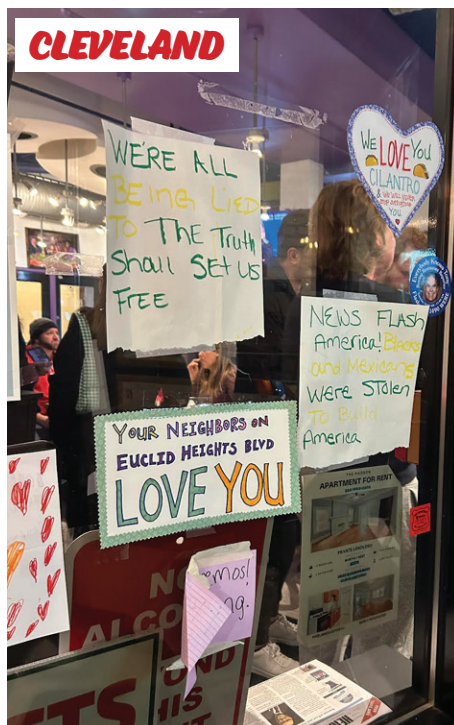 CLEVELAND
WE'RE ALL
BEING LIED
TO THE TRUTH
Shall SET US
FREE
WE
LOVE YOU
CILANTRO
YOU
NEWS FLASH
America! Blacks
and Mexicans
Were STOLEN
To Build
America
YOUR NEIGHBORS ON
EUCLID HEIGHTS BLVD
LOVE YOU
APARTMENT FOR RENT
NO
ALCO
OND
HIS
TS